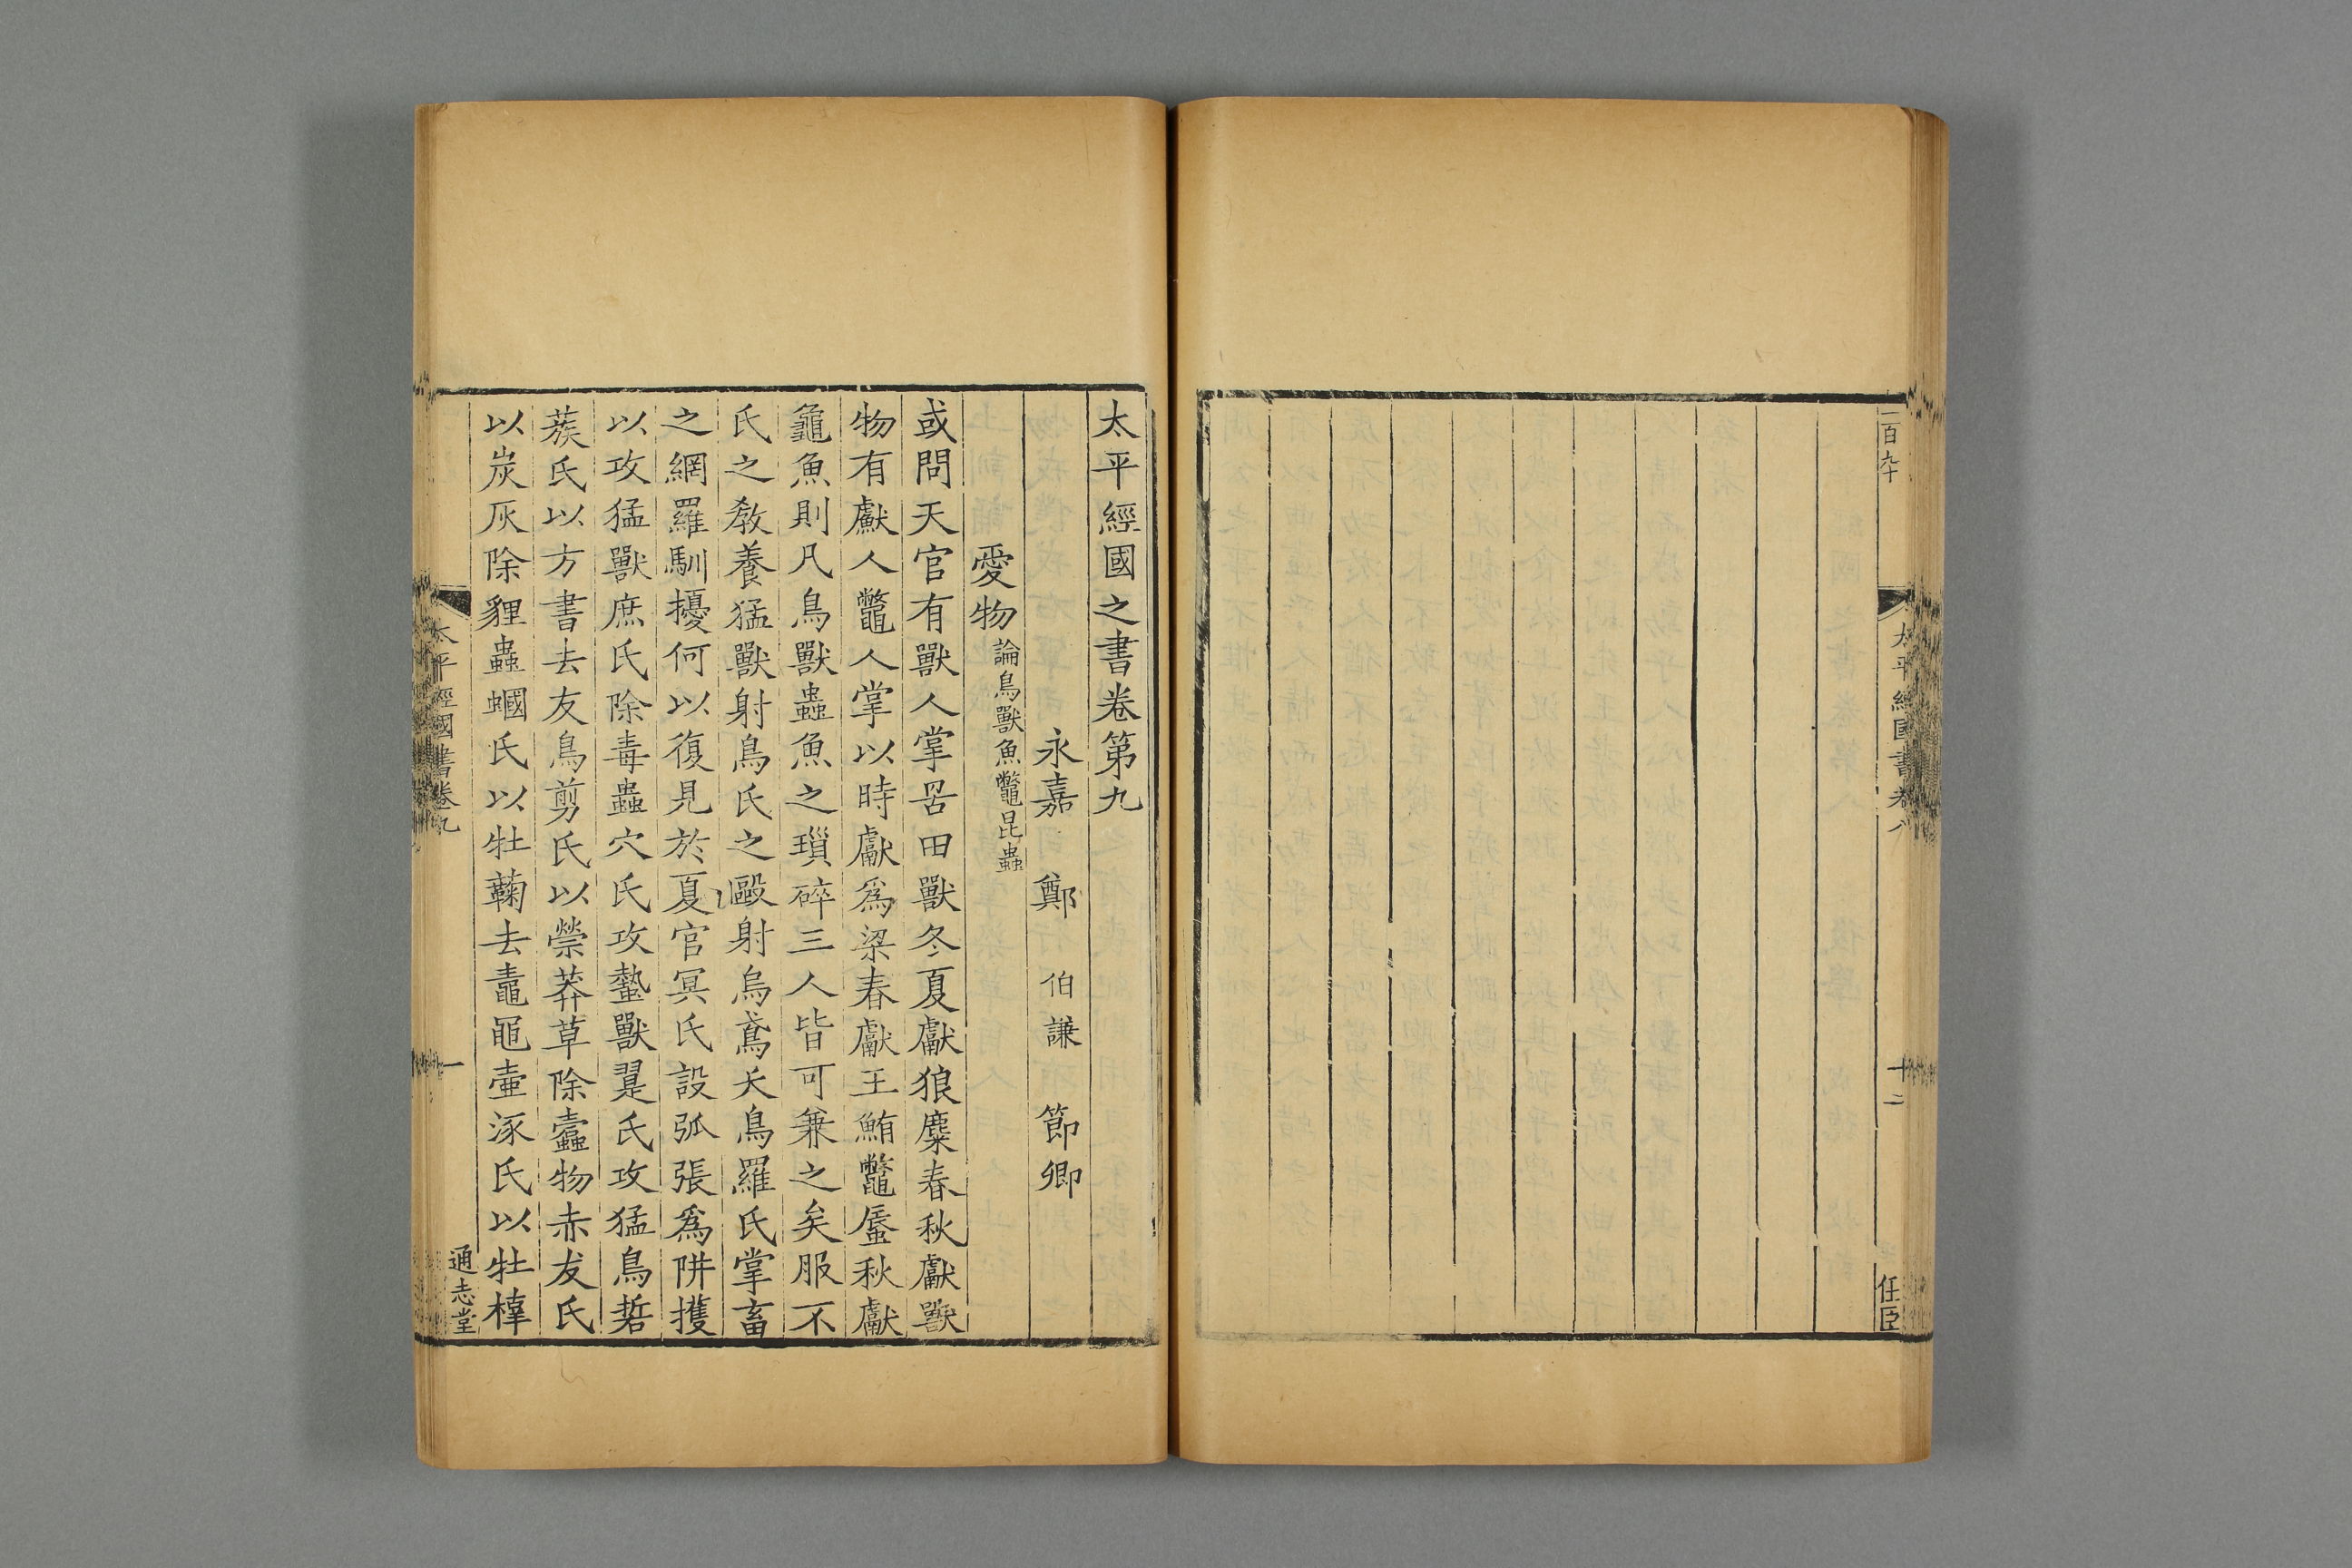 二百九十
太平經國書卷八
十二
任臣
太平經國之書卷第九
永嘉 鄭 伯謙 節卿
愛物論鳥獸魚鼈昆蟲
或問天官有獸人掌罟田獸冬夏獻狼麋春秋獻獸
物有䱷人鼈人掌以時䱷爲梁春獻王鮪鼈蜃秋獻
龜魚則凡鳥獸蟲魚之瑣碎三人皆可兼之矣服不
氏之敎養猛獸射鳥氏之敺射烏鳶夭鳥羅氏掌畜
之網羅馴擾何以復見於夏官冥氏設弧張爲阱擭
以攻猛獸庶氏除毒蟲穴氏攻蟄獸翨氏攻猛鳥硩
蔟氏以方書去夭鳥剪氏以禜莽草除蠹物赤犮氏
以炭灰除貍蟲蟈氏以牡蘜去鼃黽壷涿氏以牡橭
太平經國書卷九
一
通志堂